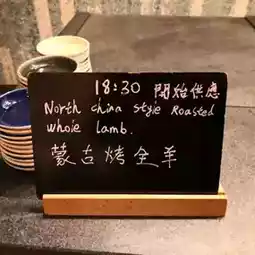 18:30 開始供應
North china style Roasted
whole lamb.
蒙古烤全羊